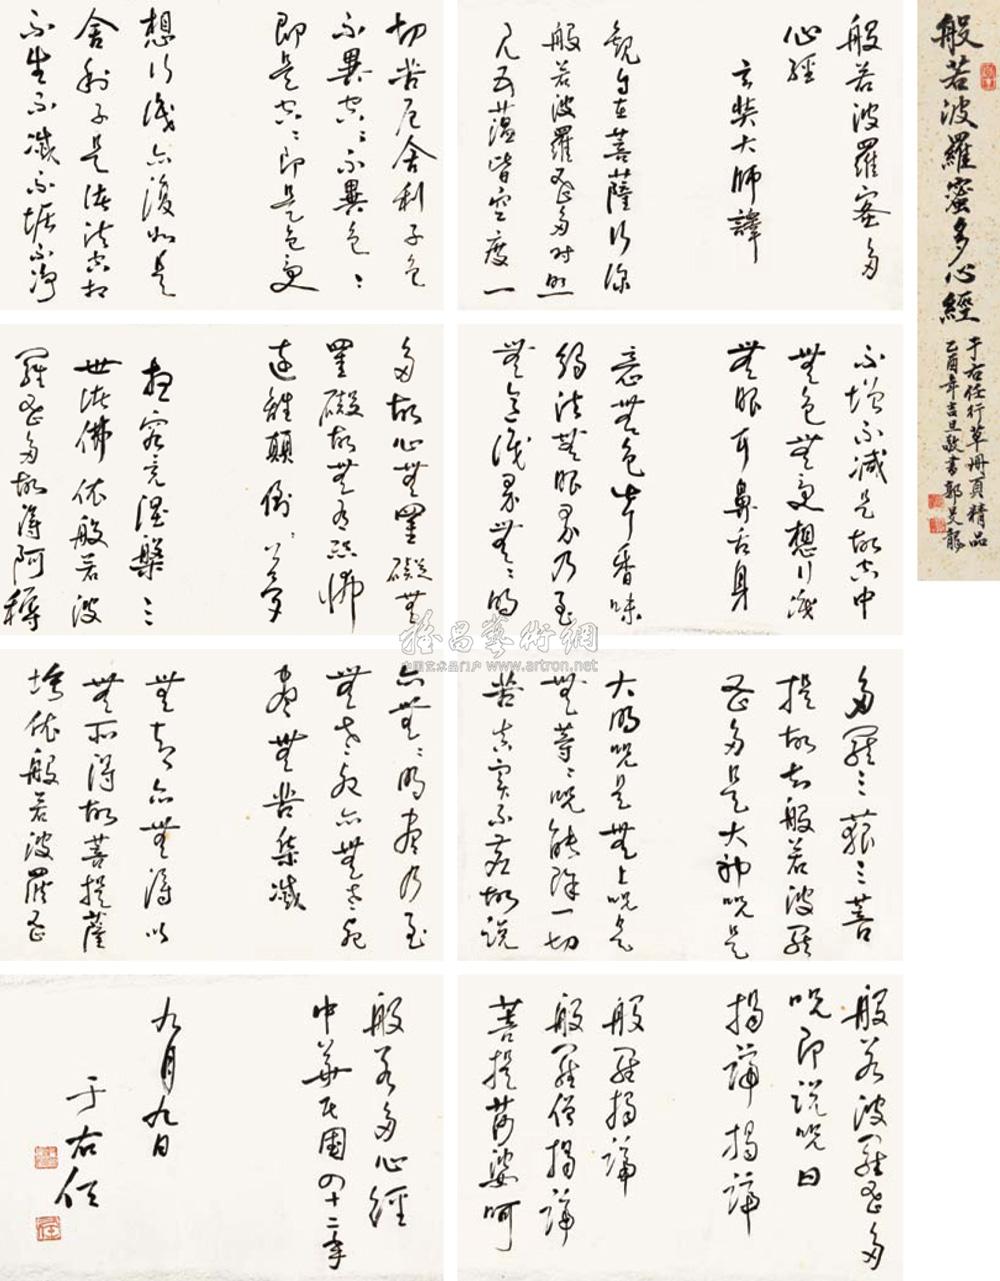 般若波羅蜜多心經
于右任行草冊頁精品
乙酉年吉旦敬書
般若波羅密多
心經
玄奘大師譯
觀自在菩薩行深
般若波羅密多時照
見五蘊皆空度一
切苦厄舍利子色
不異空〻不異色〻
即是空〻即是色受
想行識亦復如是
舍利子是諸法空相
不生不滅不垢不淨
不增不減是故空中
無色無受想行識
無眼耳鼻舌身
意無色聲香味
觸法無眼界乃至
無意識界無〻明
亦無〻明盡乃至
無老死亦無老死
盡無苦集滅
無智亦無得以
無所得故菩提薩
埵依般若波羅密
多故心無罣礙無
罣礙故無有恐怖
遠離顛倒夢
想究竟涅槃三
世諸佛依般若波
羅密多故得阿耨
多羅三藐三菩
提故知般若波羅
密多是大神咒是
大明咒是無上咒是
無等〻咒能除一切
苦真實不虛故說
般若波羅密多
咒即說咒曰
揭諦揭諦
般羅揭諦
般羅僧揭諦
菩提莎婆呵
般若多心經
中華民國四十二年
九月九日
于右任
雅昌藝術網
中国艺术品门户 www.artron.net